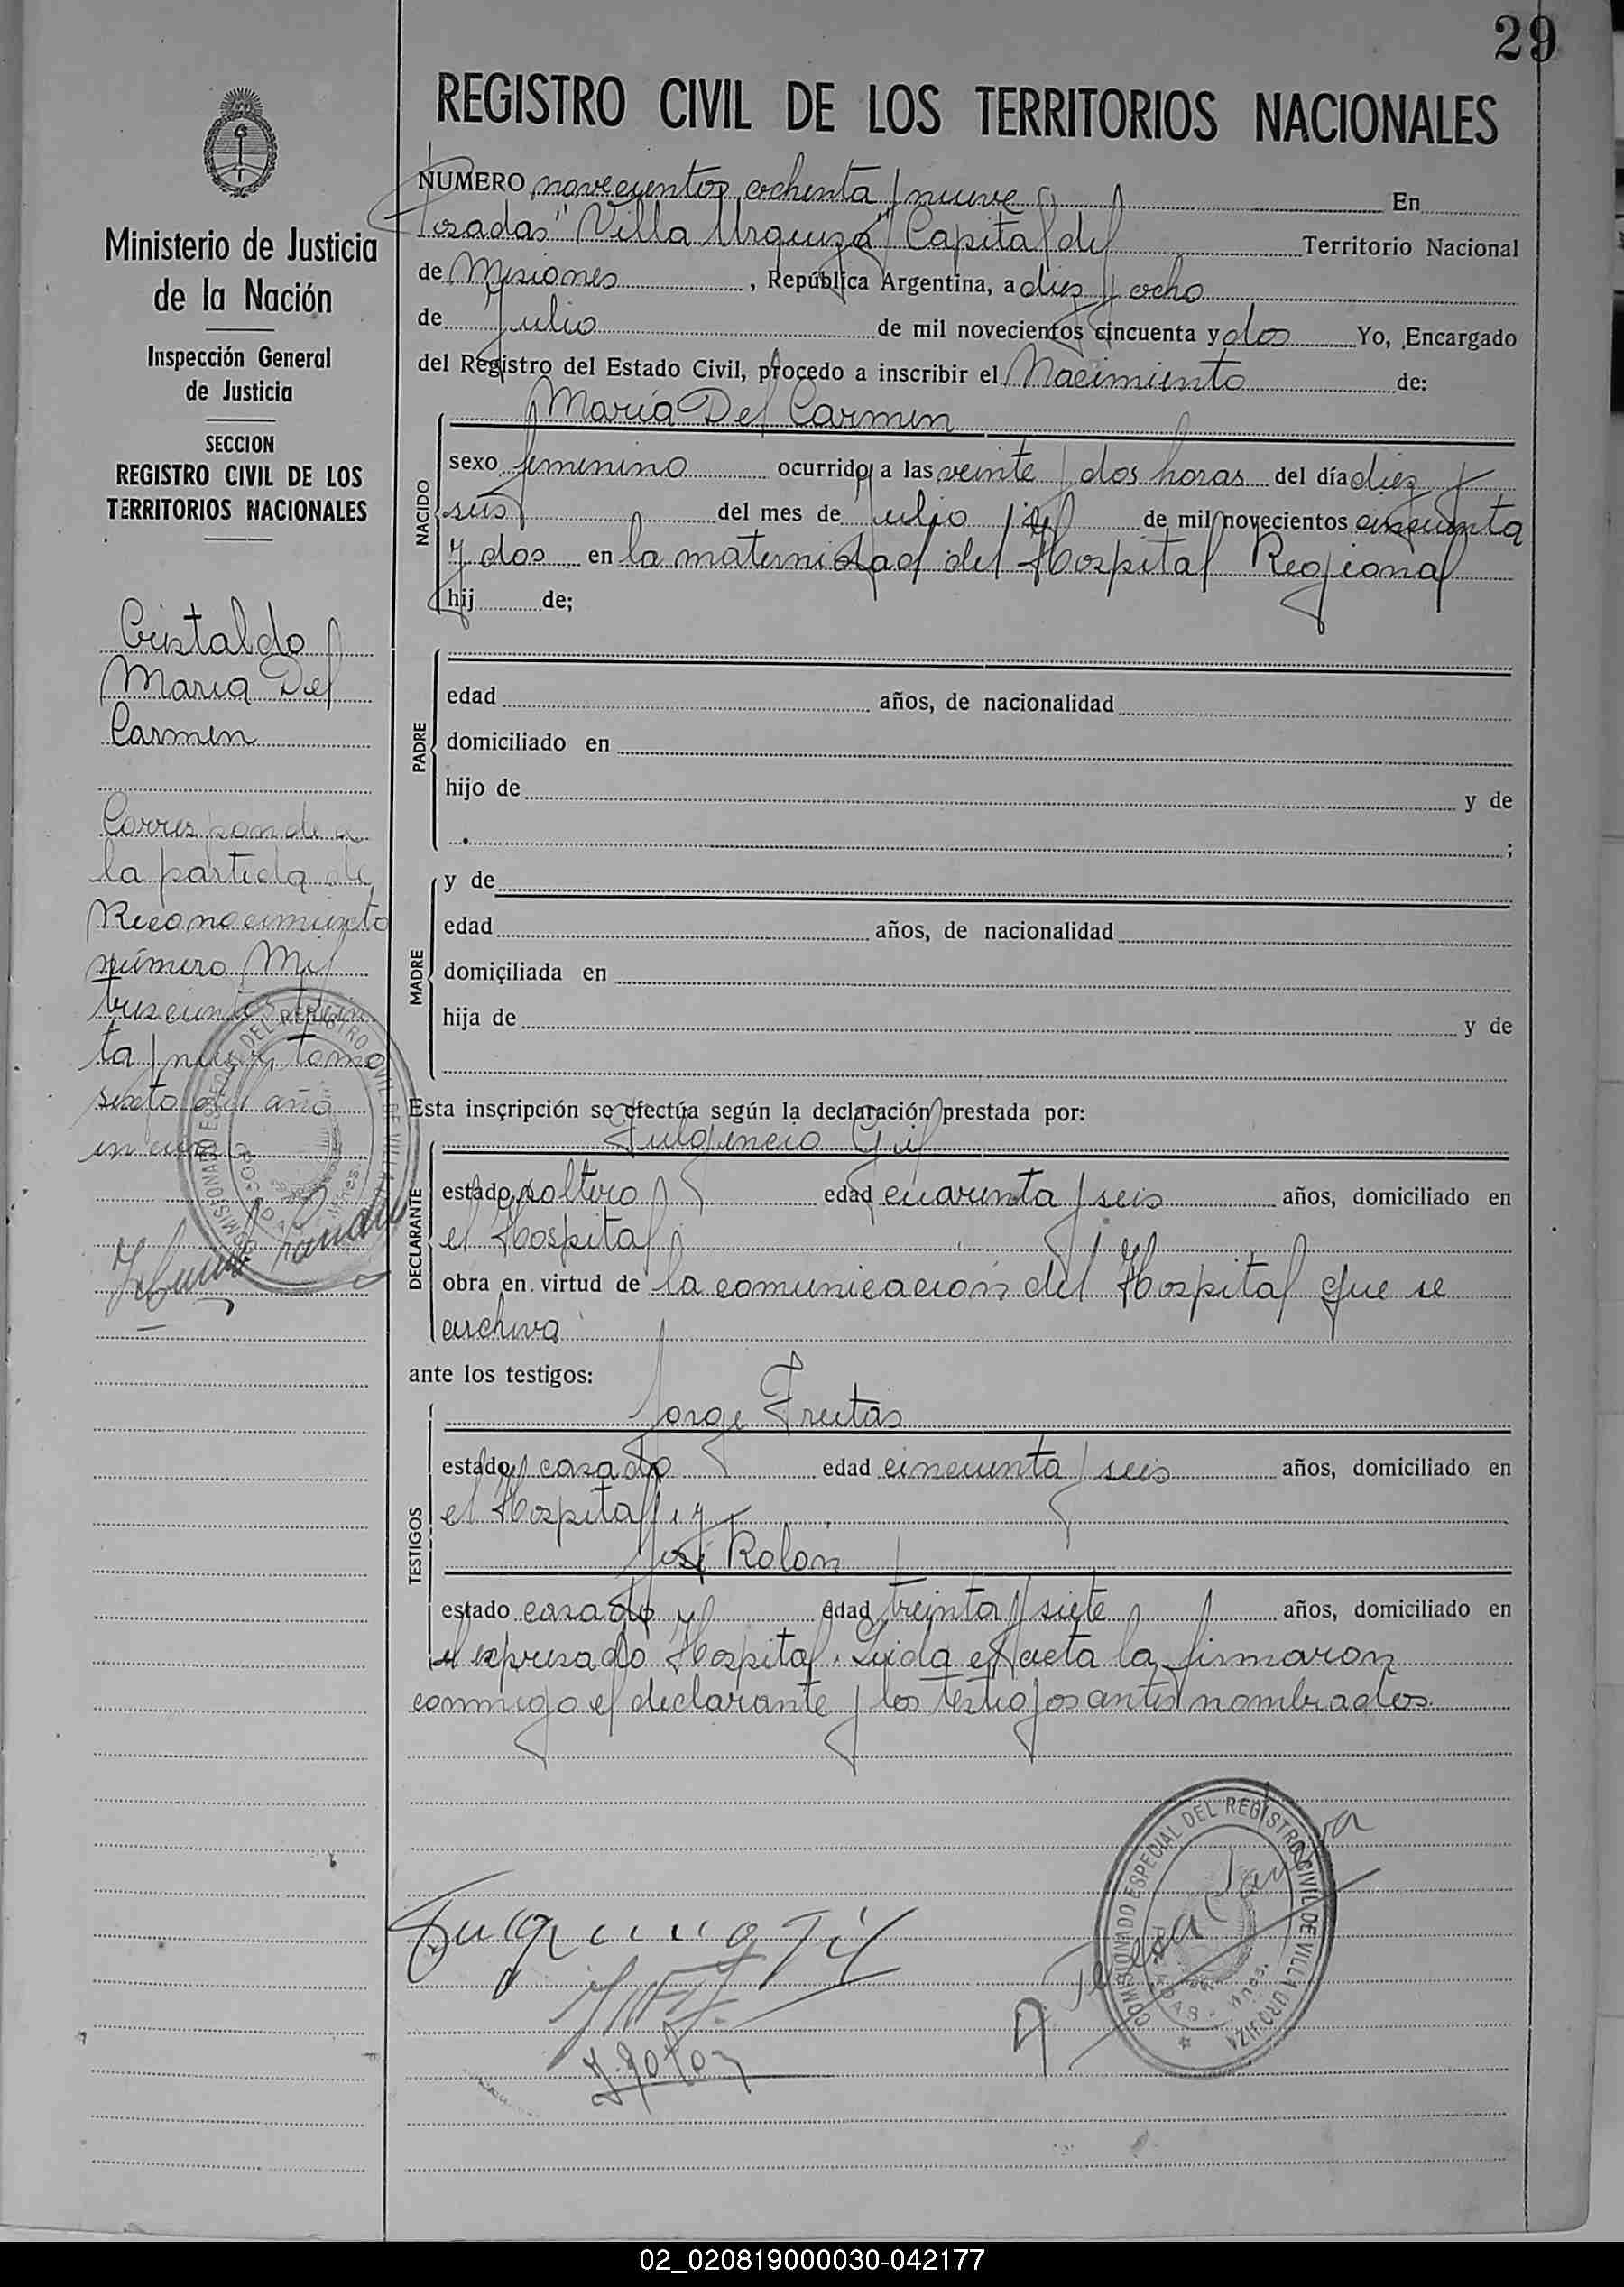 29
REGISTRO CIVIL DE LOS TERRITORIOS NACIONALES
Ministerio de Justicia
de la Nación
Inspección General
de Justicia
SECCION
REGISTRO CIVIL DE LOS
TERRITORIOS NACIONALES
Cristaldo
Maria Del
Carmen
Corresponde a
la partida de
Reconocimiento
número Mil
trescientos
ta y nueve, tomo
sexto del año
en curso
NUMERO novecientos ochenta y nueve En
Posadas "Villa Urquiza" Capital del Territorio Nacional
de Misiones, República Argentina, a diez y ocho
de Julio de mil novecientos cincuenta y dos Yo, Encargado
del Registro del Estado Civil, procedo a inscribir el Nacimiento de:
María Del Carmen
NACIDO
sexo femenino ocurrido a las veinte y dos horas del día diez y
seis del mes de Julio del de mil novecientos cincuenta
y dos en la maternidad del Hospital Regional
hij de;
PADRE
edad años, de nacionalidad
domiciliado en
hijo de y de
;
MADRE
y de
edad años, de nacionalidad
domiciliada en
hija de y de
Esta inscripción se efectúa según la declaración prestada por:
Fulgencio Gil
DECLARANTE
estado soltero edad cuarenta y seis años, domiciliado en
el Hospital
obra en virtud de la comunicación del Hospital que se
archiva
ante los testigos:
TESTIGOS
Jorge Freitas
estado casado edad cincuenta y seis años, domiciliado en
el Hospital, y
José Rolon
estado casado edad treinta y siete años, domiciliado en
el expresado Hospital. Leida el acta la firmaron
conmigo el declarante y los testigos antes nombrados.
Fulgencio Gil
J. Rolon
COMISIONADO ESPECIAL DEL REGISTRO CIVIL DE VILLA URQUIZA
POSADAS - Mnes.
02_020819000030-042177